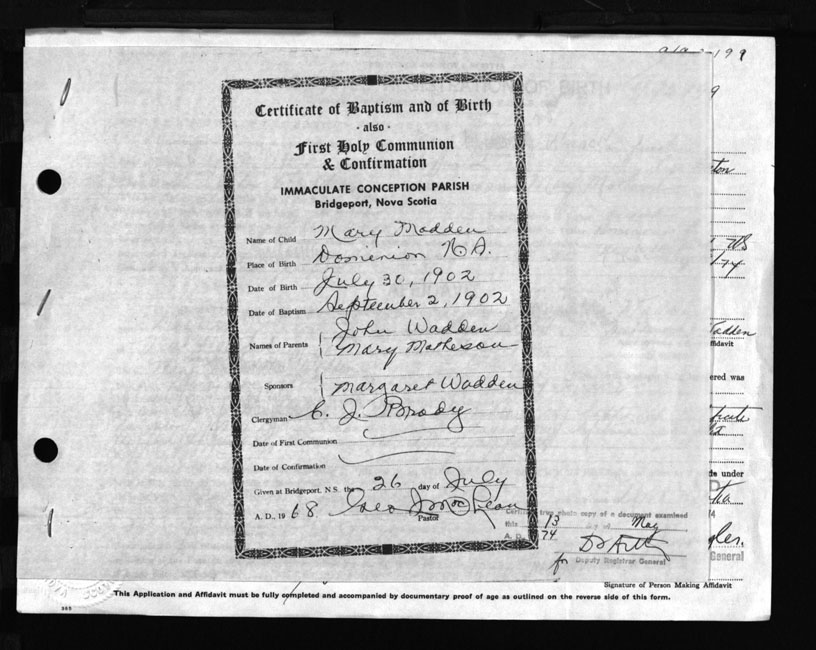 199
9
Certificate of Baptism and of Birth
- also -
First Holy Communion
& Confirmation
IMMACULATE CONCEPTION PARISH
Bridgeport, Nova Scotia
Name of Child Mary Madden
Place of Birth Dominion N.S.
Date of Birth July 30, 1902
Date of Baptism September 2, 1902
Names of Parents John Wadden
Mary Matheson
Sponsors Margaret Wadden
Clergyman C. J. Brody
Date of First Communion
Date of Confirmation
Given at Bridgeport, N.S. the 26 day of July
A. D., 19 68
Pastor
Certified true photo copy of a document examined
this 13 day of May
A. D. 74
for Deputy Registrar General
ton
adden
ffidavit
ered was
de under
14
General
Signature of Person Making Affidavit
This Application and Affidavit must be fully completed and accompanied by documentary proof of age as outlined on the reverse side of this form.